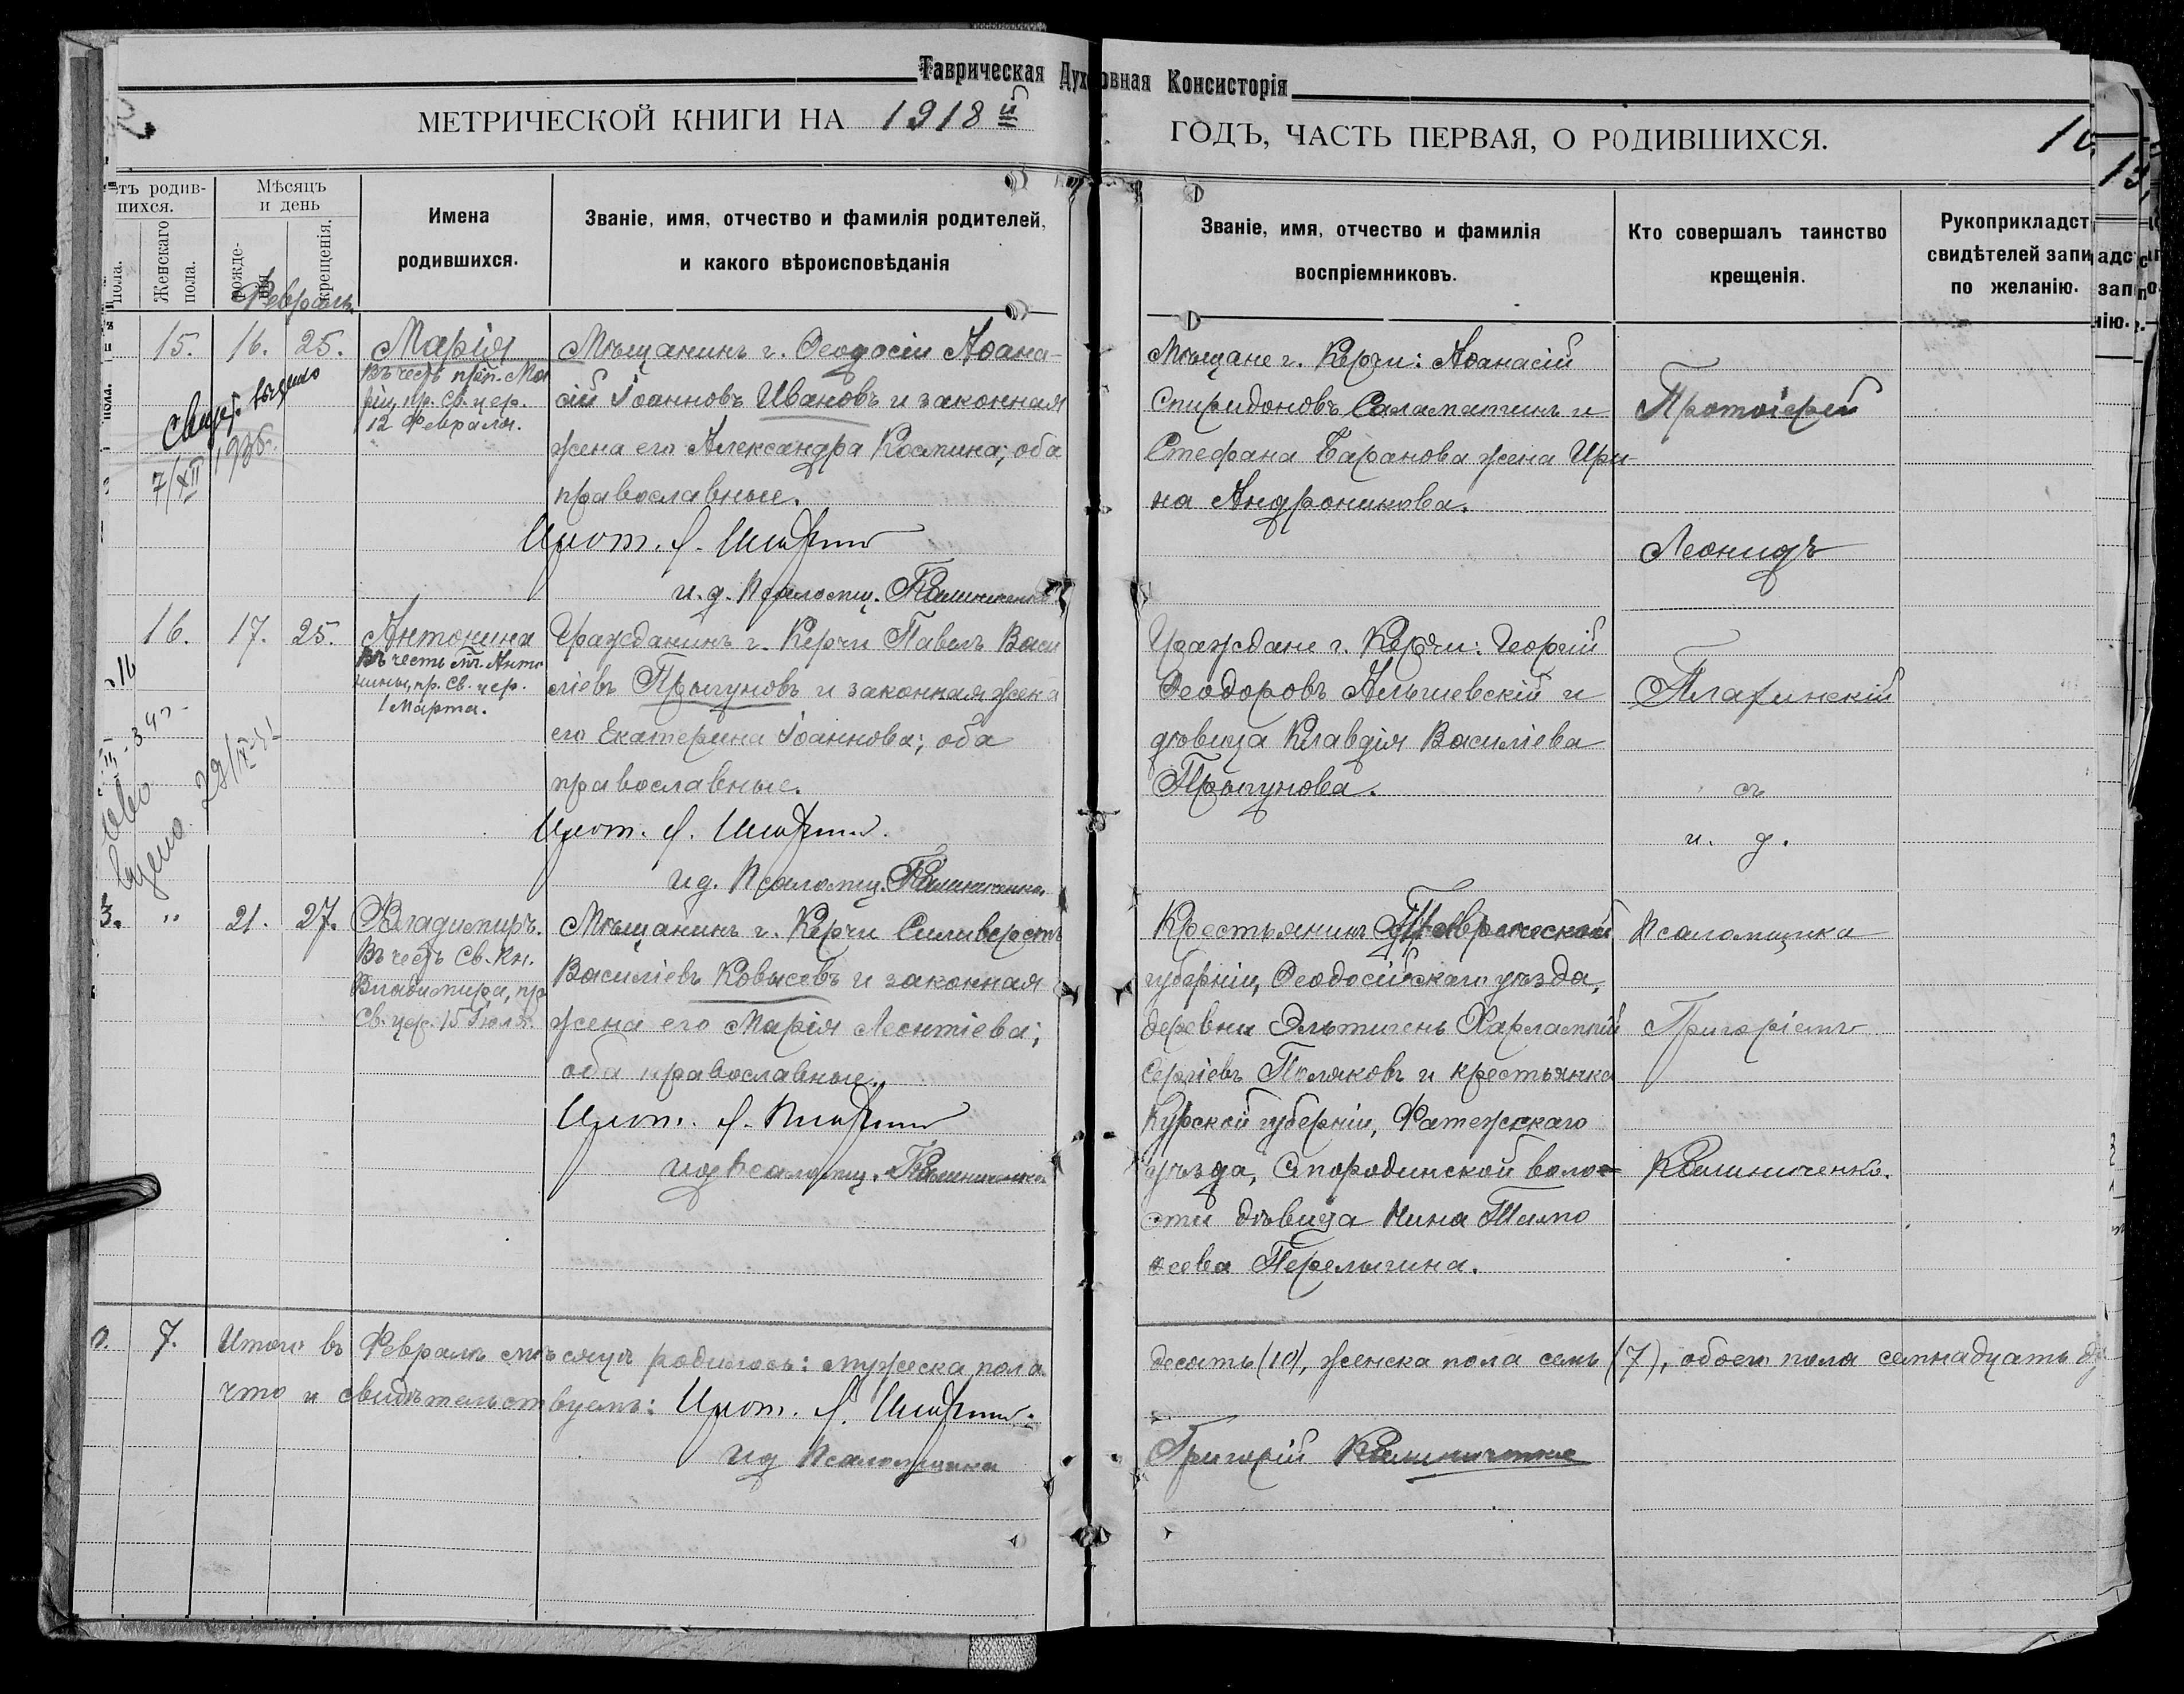 Таврическая Духовная Консисторія
МЕТРИЧЕСКОЙ КНИГИ НА 1918й
ГОДЪ, ЧАСТЬ ПЕРВАЯ, О РОДИВШИХСЯ.
10
родив-
шихся.
пола.
Женскаго
пола.
Мѣсяцъ
и день
рожде-
нія
крещенія.
Имена
родившихся.
Званіе, имя, отчество и фамилія родителей,
и какого вѣроисповѣданія
Званіе, имя, отчество и фамилія
воспріемниковъ.
Кто совершалъ таинство
крещенія.
Рукоприкладст
свидѣтелей запи
по желанію.
Февраль
15. 16. 25.
Марія
Въ честь преп. Ма
ріи, пр. Св. цер.
12 Февраля.
Мѣщанинъ г. Ѳеодосіи Аѳана-
сій Іоанновъ Ивановъ и законная
жена его Александра Космина; оба
православные.
Прот.
и. д. Псаломщ. Калиниченко
Мѣщане г. Керчи: Аѳанасій
Спиридоновъ Саламатинъ и
Стефана Баранова жена Ири
на Андроникова.
Протоіерей
Леонидъ
7/XII 1936.
16. 17. 25.
Антонина
Въ честь мч. Анто
нины, пр. Св. цер.
1 Марта.
Гражданинъ г. Керчи Павелъ Васи
ліевъ Прыгуновъ и законная жена
его Екатерина Іоаннова; оба
православные.
Прот.
и д. Псаломщ. Калиниченко.
Граждане г. Керчи: Георгій
Ѳеодоровъ Альшевскій и
дѣвица Клавдія Василіева
Прыгунова.
съ
и. д.
3. " 21. 27.
Владиміръ.
Въ честь Св. Кн.
Владиміра, пр
Св. цер. 15 Іюля.
Мѣщанинъ г. Керчи Сильверстъ
Василіевъ Ковысевъ и законная
жена его Марія Леонтіева;
оба православные.
Прот.
и д Псаломщ. Калиниченко
Крестьянинъ Таврической
губерніи, Ѳеодосійскаго уѣзда,
деревни Эльтигенъ Харлампій
Сергіевъ Поляковъ и крестьянка
Курской губерніи, Фатежскаго
уѣзда, Смородинской воло-
сти дѣвица Нина Тимо
ѳеева Перелыгина.
Псаломщика
Григоріемъ
Калиниченко.
0. 7. Итого въ Февралѣ мѣсяцѣ родилось: мужеска пола
десять (10), женска пола семь (7), обоего пола семнадцать
что и свидѣтельствуемъ: Прот.
и д Псаломщика
Григорій Калиниченко